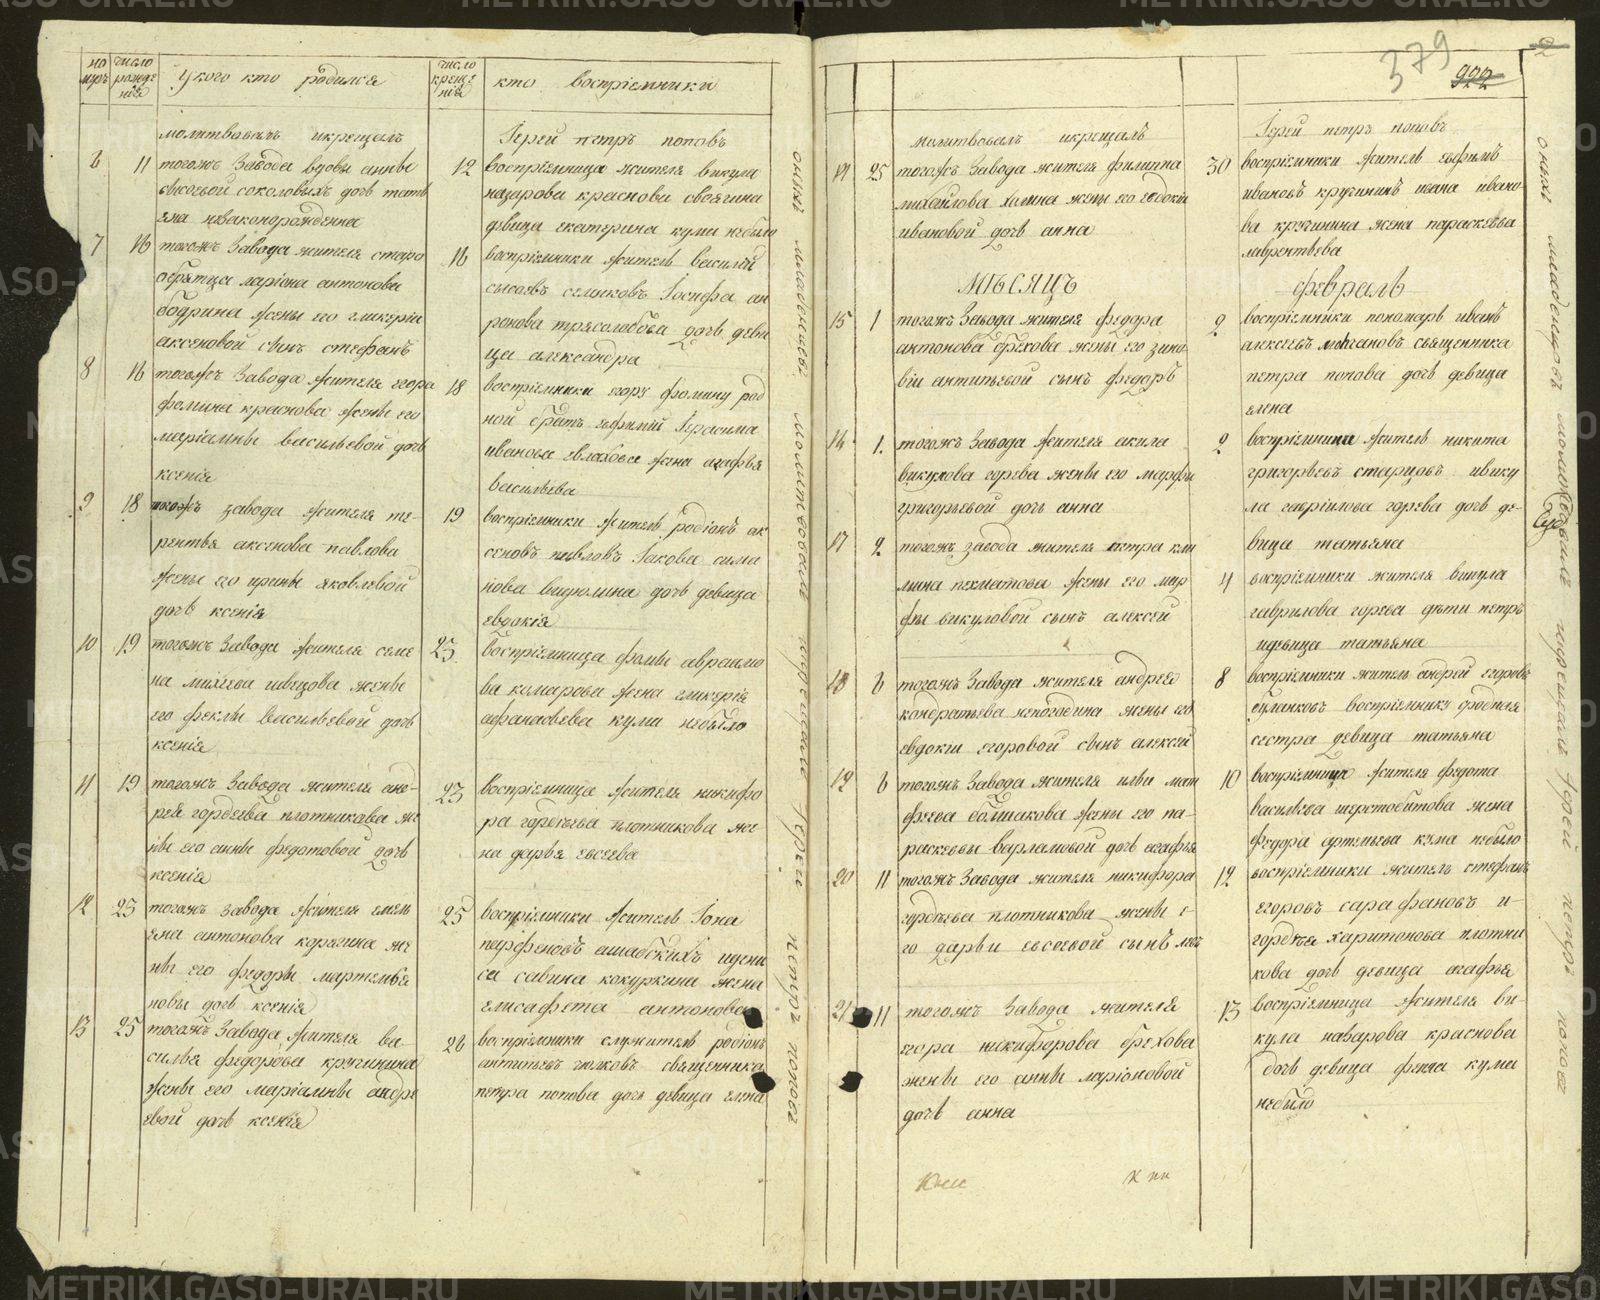 но
меръ
число
рожде
нія
У кого кто родился
число
креще
нія
кто воспріемники
молитвовалъ икрещалъ
Іерей петръ поповъ
6
11
тогожъ Завода вдовы анны
сысоевой соколовыхъ дочь тать
яна незаконорожденна
12
воспріемница жителя викула
назарова краснова своячина
девица екатерина кума небыло
7
16
тогожъ Завода жителя старо
обрятца ларіона антонова
бодрина жены его гликеріи
аксеновой сынъ стефанъ
16
воспріемники житель василій
сысоевъ селнковъ Іосифа ан
ронова трясолобова дочь деви
ца александра
8
16
тогожъ Завода жителя егора
фомина краснова жены его
маріамны васильевой дочь
ксенія
18
воспріемники егору фомину род
ной братъ ефимій Герасима
иванова евлахова жена агафья
васильева
9
18
тогожъ завода жителя те-
рентья аксенова павлова
жены его ирины яковлевой
дочь ксенія
19
воспріемники житель родіонъ ак
сеновъ павловъ Іакова сима
нова видюлина дочь девица
евдокія
10
19
тогожъ Завода жителя семе
на михеева швецова жены
его феклы васильевой дочь
ксенія
23
воспріемница фомы авраамо
ва комарова жена гликерія
афанасьева кума небыло
11
19
тогожъ Завода жителя анд-
рея гордеева плотникова же
ны его анны федотовой дочь
ксенія
23
воспріемница жителя никифо
ра гордеева плотникова же
на дарья евсеева
12
23
тогожъ завода жителя емель
яна антонова корягина же
ны его федоры мартемья
новы дочь ксенія
25
воспріемники житель Іона
парфеновъ ашабскихъ идени
са савина кокуркина жена
елисафета антонова
13
25
тогожъ Завода жителя ва-
силья федорова кручинина
жены его маріамны андре
евой дочь ксенія
26
воспріемники служитель родіонъ
антипьевъ чолковъ священника
петра попова дочь девица елена
оныхъ младенцовъ молитвовалъ икрещалъ Іерей петръ поповъ
379
922
2
молитвовалъ икрещалъ
Іерей петръ поповъ
14
25
тогожъ Завода жителя филиппа
михайлова холина жены его евдокіи
ивановой дочь анна
30
воспріемники житель ефимъ
ивановъ кручининъ ивана ивано-
ва кручинина жена параскевва
лаврентьева
МѢСЯЦЪ
февраль
15
1
тогожъ Завода жителя федора
антонова грехова жены его зино-
віи антипьевой сынъ федоръ
2
воспріемники пономарь иванъ
алексеевъ священника
петра попова дочь девица
елена
16
1
тогожъ Завода жителя акила
викулова горева жены его марфы
григорьевой дочь анна
2
воспріемники житель никита
григорьевъ старцовъ ивику
ла гавріилова горева дочь де-
вица татьяна
17
2
тогожъ завода жителя петра кли
мина пехматова жены его мар
фы викуловой сынъ алексей
4
воспріемники жителя викула
гаврилова горева дети петръ
идевица татьяна
18
6
тогожъ Завода жителя андрея
кондратьева непогодина жены его
евдокіи егоровой сынъ алексей
8
воспріемники житель андрей егоровъ
булановъ воспріемнику родная
сестра девица татьяна
19
6
тогожъ Завода жителя ильи мат
феева болшакова жены его па-
раскеввы варламовой дочь агафья
10
воспріемница жителя федота
васильева шерстобитова жена
федора артемьева кума небыло
20
11
тогожъ Завода жителя никифора
гордеева плотникова жены е-
го дарьи евсеевой сынъ левъ
12
воспріемники житель стефанъ
егоровъ сарафановъ и-
гордея харитонова плотни
кова дочь девица агафья
21
11
тогожъ Завода жителя
егора никифорова грехова
жены его анны ларіоновой
дочь анна
13
воспріемница жителя ви-
кула назарова краснова
дочь девица фекла кума
небыло
оныхъ младенцовъ молитвовалъ икрещалъ Іерей петръ поповъ